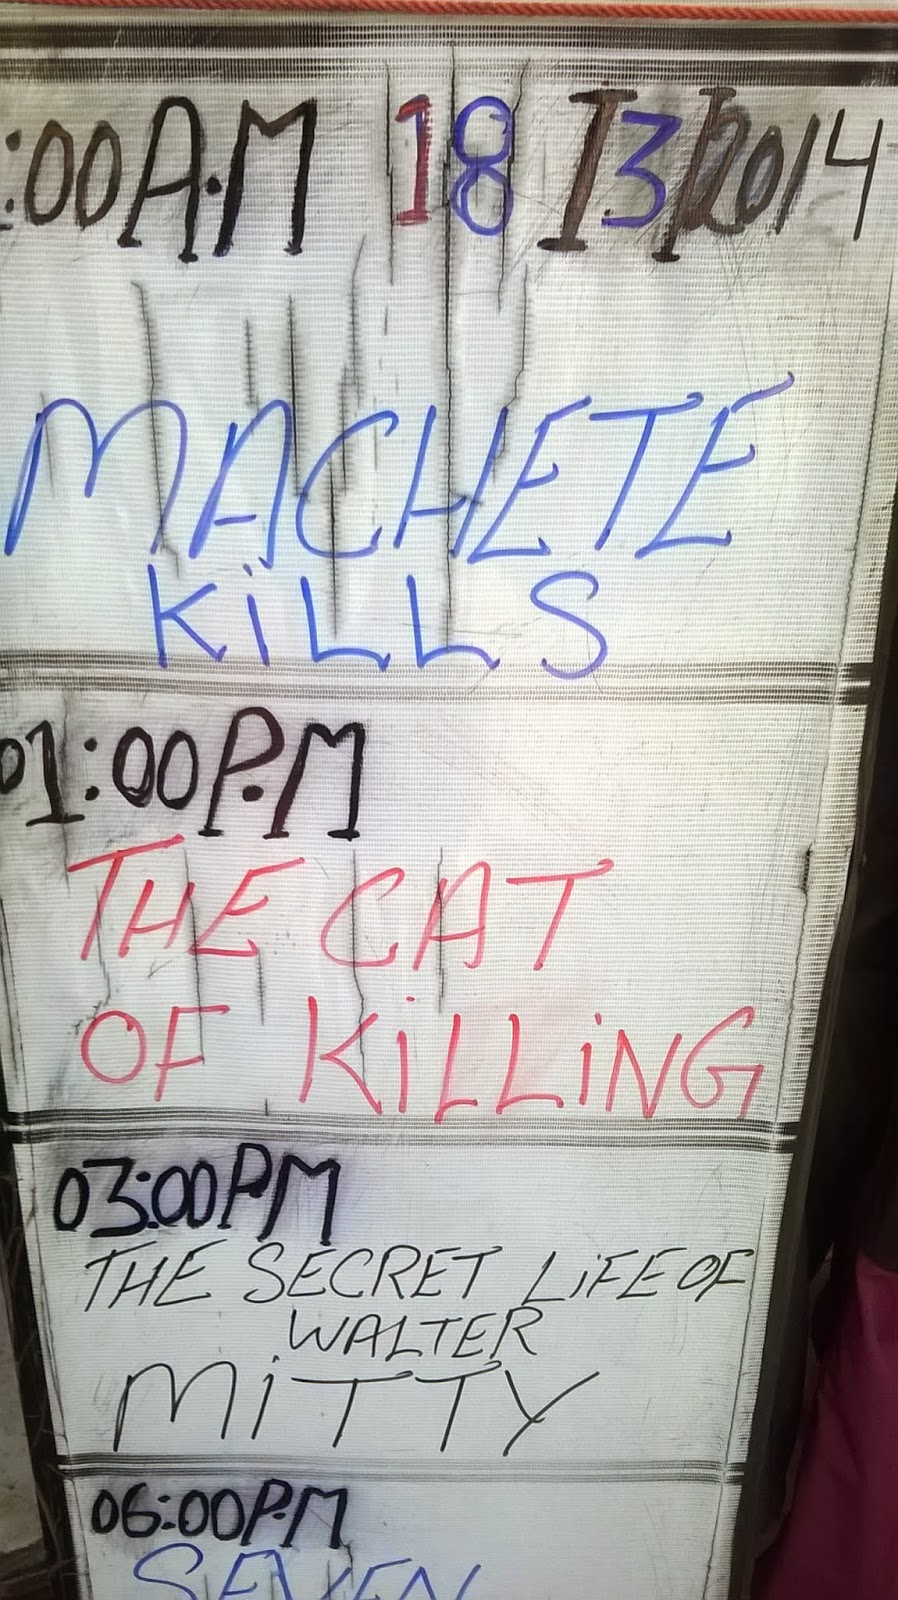 :00A.M 18/3/2014
MACHETE
KiLLS
01:00P.M
THE CAT
OF KiLLiNG
03:00PM
THE SECRET LiFE OF
WALTER
MiTTY
06:00P.M
SEVEN